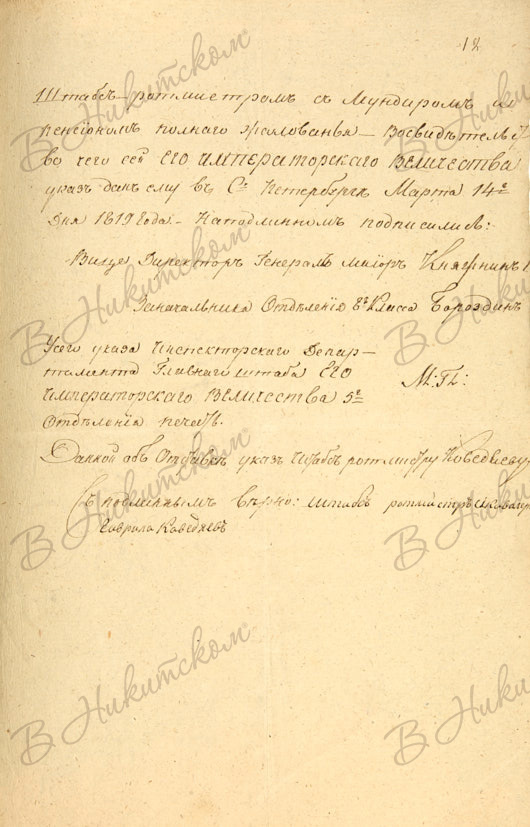 12
Штабсъ-ротмистромъ съ Мундиромъ и
пенсіономъ полнаго жалованья — Восвидѣтельст
во чего сей ЕГО ИМПЕРАТОРСКАГО ВЕЛИЧЕСТВА
указъ данъ ему въ Сᵗ Петербургѣ Марта 14ᵉ
Дня 1819 Года. — Наподлинномъ подписались:
Вице Директоръ Генералъ маіоръ Княжнинъ 1
Заначальника Отдѣленія 8ᵍᵒ Класса Бороздинъ
Усего указа Инспекторскаго Депар-
тамента Главнаго штаба ЕГО
ИМПЕРАТОРСКАГО ВЕЛИЧЕСТВА 5ᵉ
Отдѣленія печать.
М: П:
Данной объ Отставкѣ указъ Штабсъ ротмистру
Съ подлиннымъ вѣрно: штабсъ ротмистръ
Гаврила
В Никитском
В Никитском
В Никитском
В Никитском
В Никитском
В Никитском
В Никитском
В Никитском